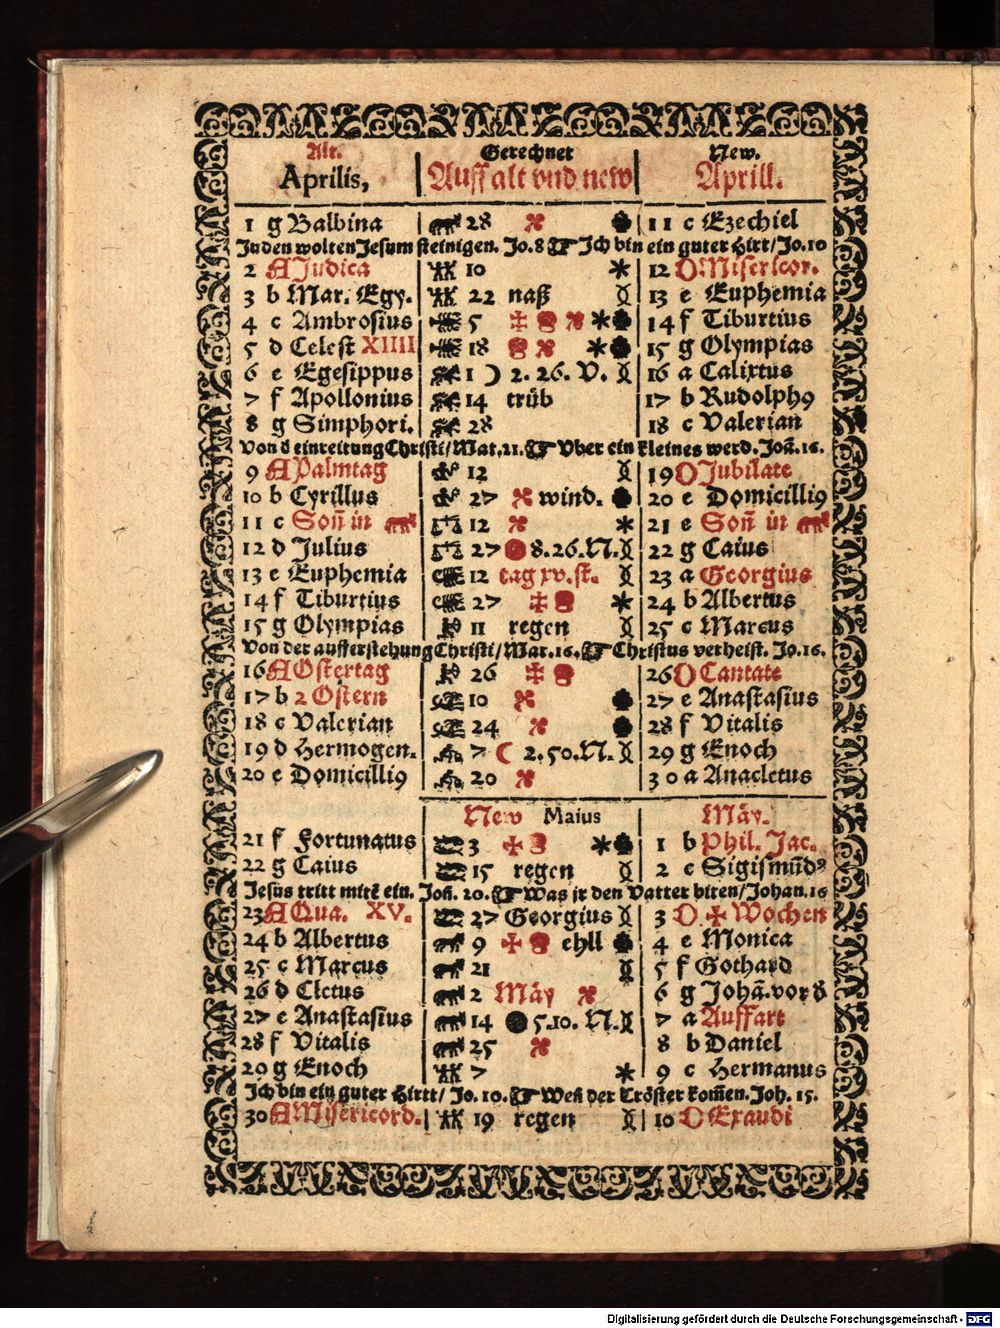 Alt. Gerechnet New.
Aprilis, Auff alt vnd new Aprill.
1 g Balbina 28 11 c Ezechiel
Juden wolten Jesum steinigen. Jo. 8 Ich bin ein guter Hirt/ Jo. 10
2 A Judica 10 12 D Misericor.
3 b Mar. Egy. 22 naß 13 e Euphemia
4 c Ambrosius 5 14 f Tiburtius
5 d Celest XIIII 18 15 g Olympias
6 e Egesippus 1 2. 26. V. 16 a Calixtus
7 f Apollonius 14 trüb 17 b Rudolph9
8 g Simphori. 28 18 c Valerian
Von d einreitung Christi/ Mat. 21. Vber ein kleines werd. Joā. 16.
9 A Palmtag 12 19 D Jubilate
10 b Cyrillus 27 wind. 20 e Domicilli9
11 c Soñ in 12 21 e Soñ in
12 d Julius 27 8. 26. N. 22 g Caius
13 e Euphemia 12 tag xv. st. 23 a Georgius
14 f Tiburtius 27 24 b Albertus
15 g Olympias 11 regen 25 c Marcus
Von der aufferstehung Christi/ Mar. 16. Christus verheist. Jo. 16.
16 A Ostertag 26 26 D Cantate
17 b 2 Ostern 10 27 e Anastasius
18 c Valerian 24 28 f Vitalis
19 d Hermogen. 7 2. 50. N. 29 g Enoch
20 e Domicilli9 20 30 a Anacletus
New Maius Mäy.
21 f Fortunatus 3 1 b Phil. Jac.
22 g Caius 15 regen 2 c Sigismūd9
Jesus tritt mitē ein. Joh. 20. Was jr den Vatter biten/ Johan. 16
23 A Qua. XV. 27 Georgius 3 D. Wochen
24 b Albertus 9 ehll 4 e Monica
25 c Marcus 21 5 f Gothard
26 d Cletus 2 Mäy 6 g Johā. vor d
27 e Anastasius 14 5. 10. N. 7 a Auffart
28 f Vitalis 25 8 b Daniel
29 g Enoch 7 9 c Hermanus
Ich bin ein guter Hirtt/ Jo. 10. Weñ der Tröster kom̄en. Joh. 15.
30 A Misericord. 19 regen 10 D Exaudi
Digitalisierung gefördert durch die Deutsche Forschungsgemeinschaft - DFG